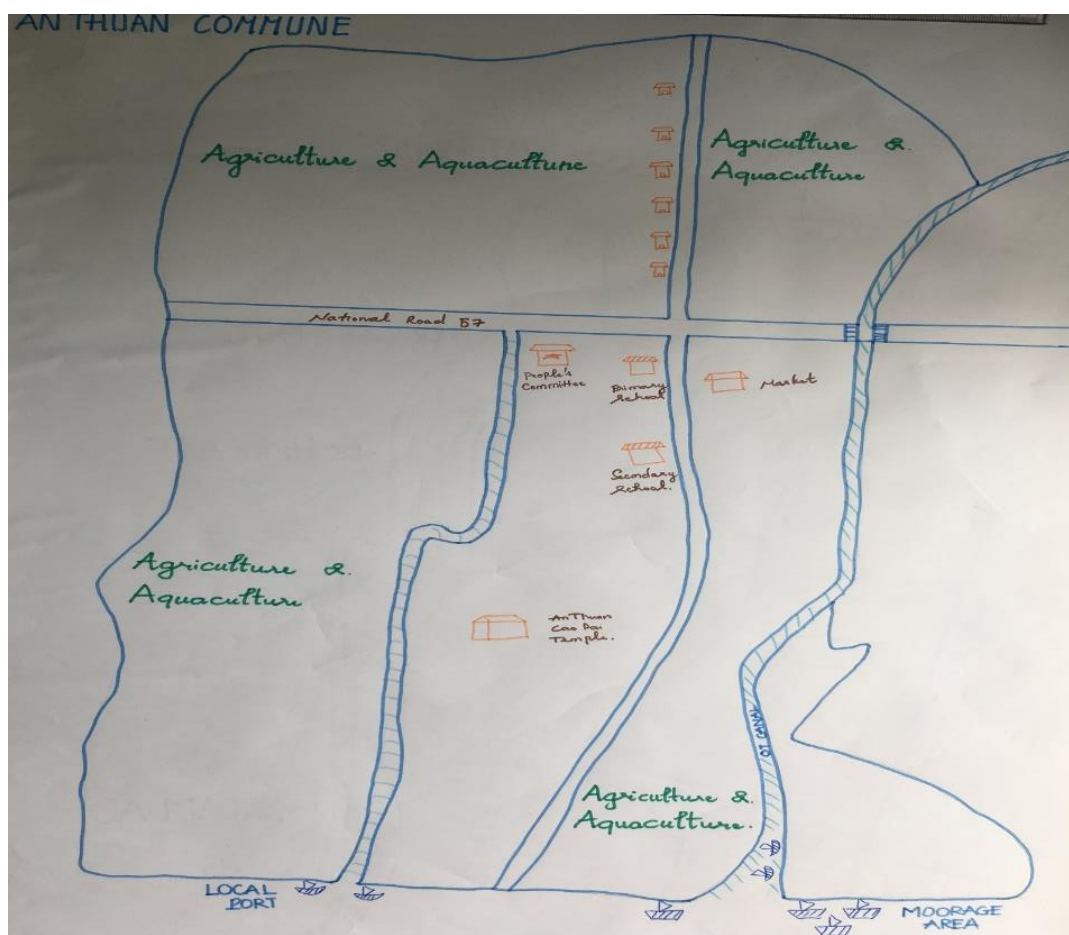 AN THUAN COMMUNE
Agriculture & Aquaculture
Agriculture &.
Aquaculture
National Road 57
People's
Committee
Primary
School
Market
Secondary
School.
Agriculture &.
Aquaculture
An Thuan
Cao Dai
Temple.
OT CANAL
Agriculture &.
Aquaculture.
LOCAL
PORT
MOORAGE
AREA